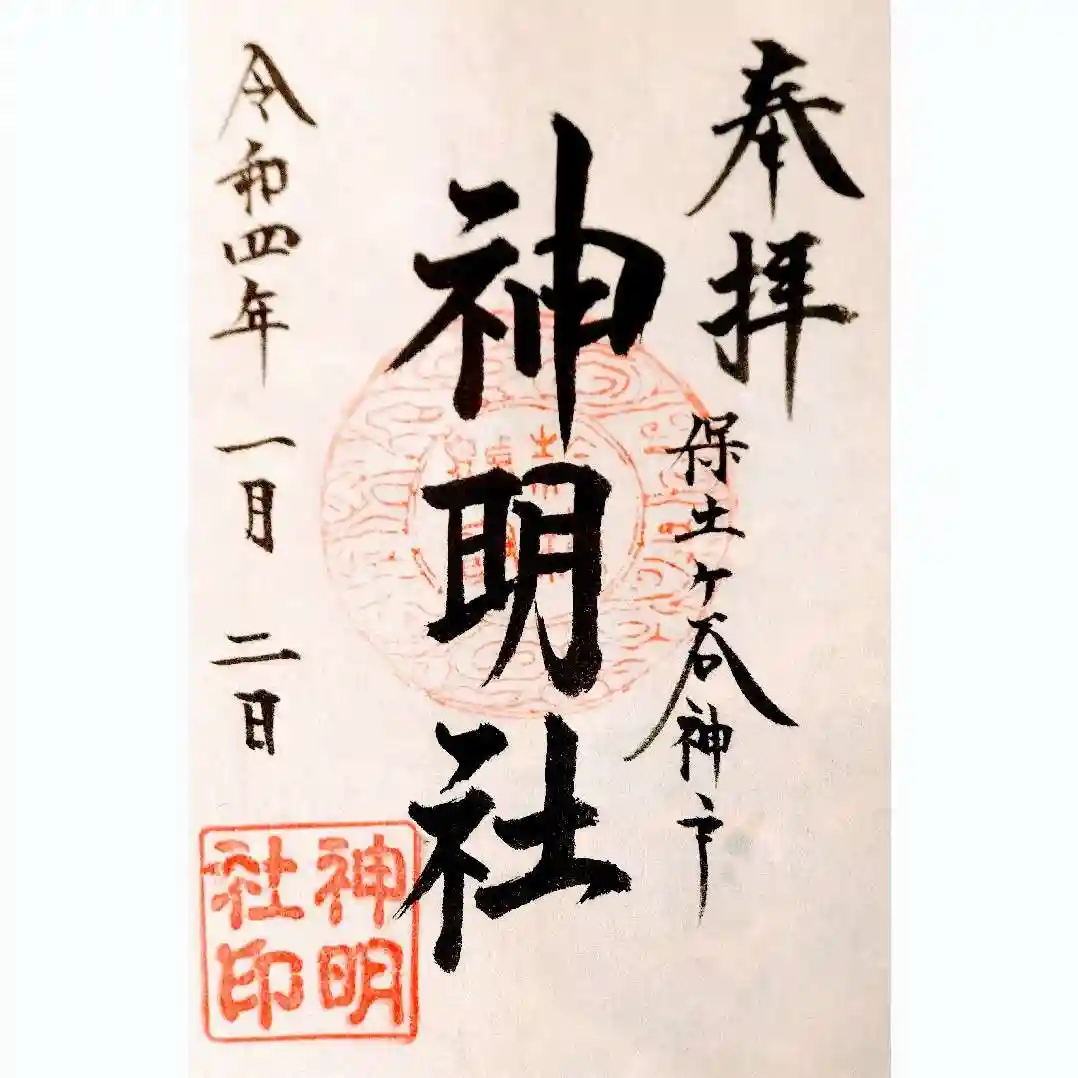 奉拝
保土ケ谷神戸
神明社
令和四年 一月 二日
神明
社印